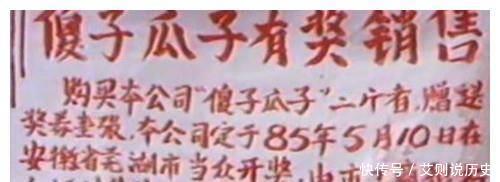 傻子瓜子有奖销售
购买本公司“傻子瓜子”二斤者,赠送
奖券壹张,本公司定于85年5月10日在
安徽省芜湖市当众开奖,由市
快传号/艾则说历史